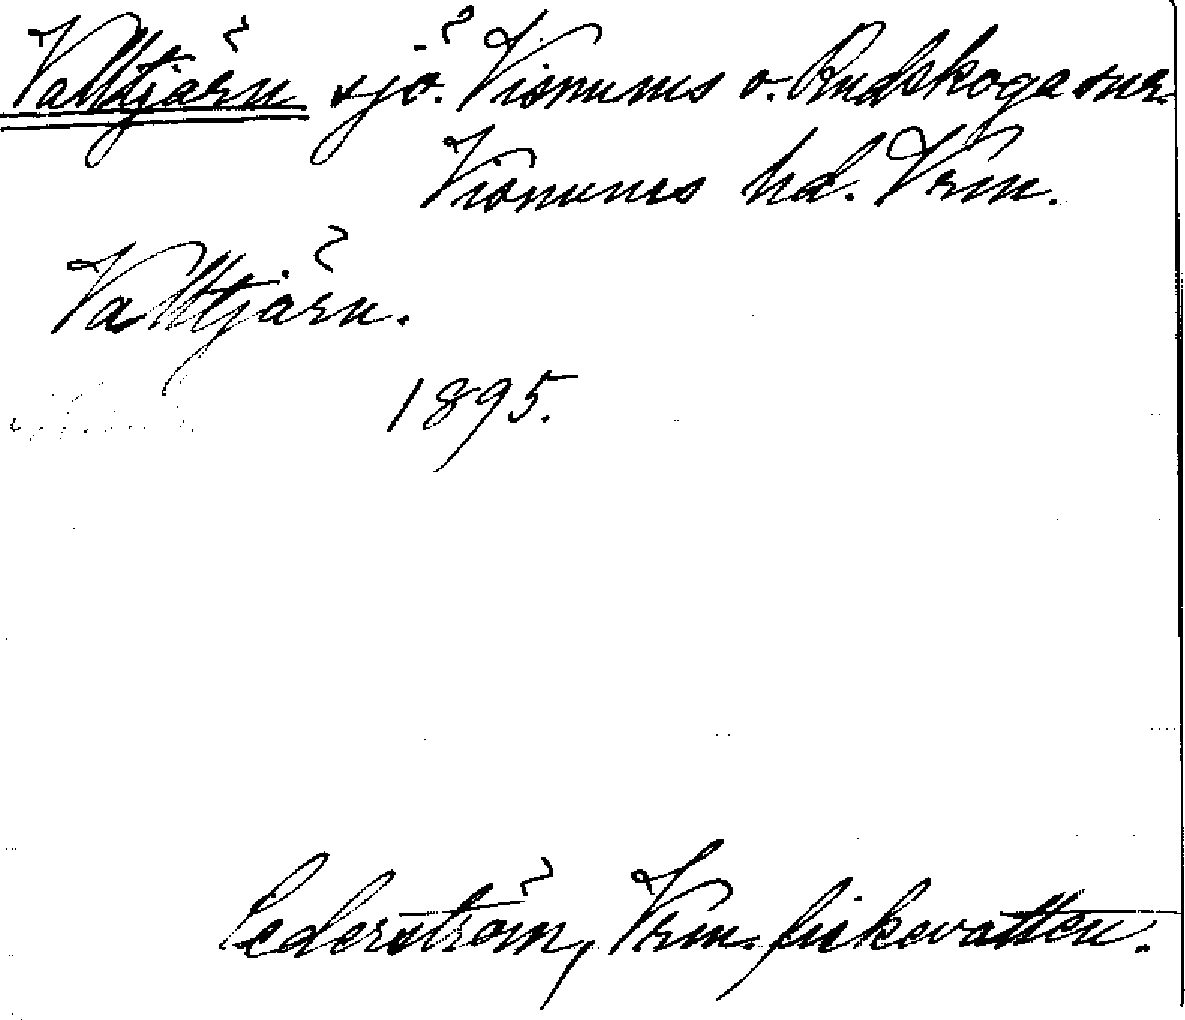 Valltjärn sjö. Visnums o. Rudskoga snr.
Visnums hd. Vrm.
Valltjärn.
1895.
Cederström, Vrm. fiskevatten.